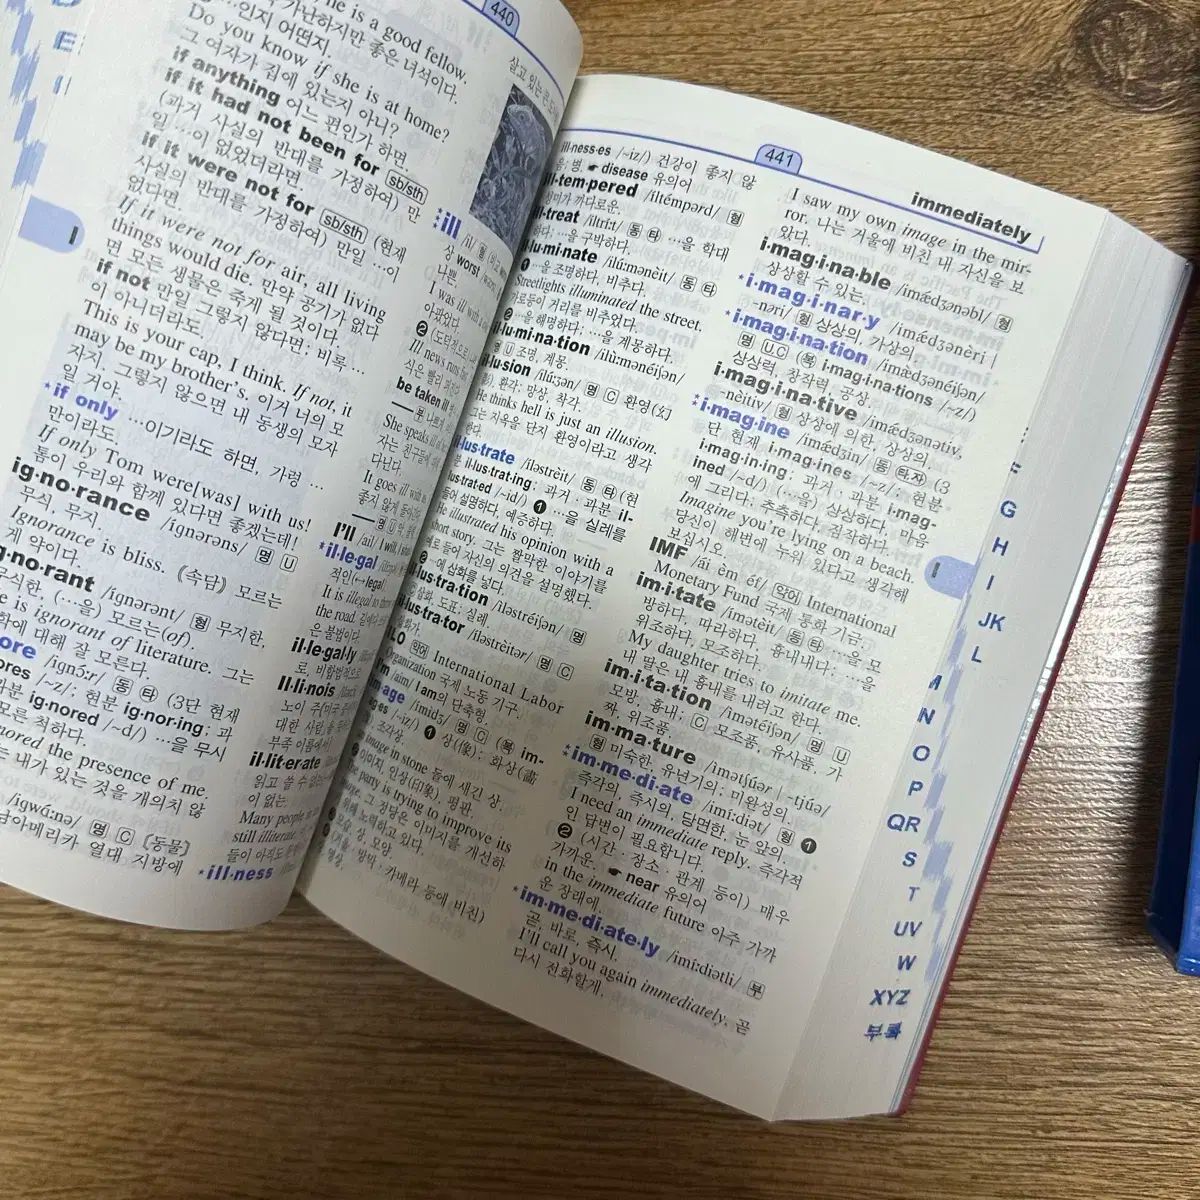 440
he is a good fellow.
가난하지만 좋은 녀석이다.
…인지 어떤지.
Do you know if she is at home?
그 여자가 집에 있는지 아니?
if anything 어느 편인가 하면.
if it had not been for sb/sth
(과거 사실의 반대를 가정하여) 만
일 …이 없었더라면.
if it were not for sb/sth (현재
사실의 반대를 가정하여) 만일 …이
없다면.
If it were not for air, all living
things would die. 만약 공기가 없다
면 모든 생물은 죽게 될 것이다.
if not 만일 그렇지 않다면; 비록 …
이 아니더라도.
This is your cap, I think. If not, it
may be my brother's. 이거 너의 모
자지. 그렇지 않으면 내 동생의 모자
일 거야.
*if only …이기라도 하면, 가령 …
만이라도.
If only Tom were[was] with us!
톰이 우리와 함께 있다면 좋겠는데!
ig·no·rance /ígnərəns/ 명 U
무식, 무지.
Ignorance is bliss. (속담) 모르는
게 약이다.
ig·no·rant /ígnərənt/ 형 무지한,
무식한, (…을) 모르는(of).
He is ignorant of literature. 그는
문학에 대해 잘 모른다.
/ignɔ́:r/ 동 타 (3단 현재
/~z/; 현분 ig·nor·ing; 과
ig·nored /~d/) …을 무시
모른 척하다.
ignored the presence of me.
는 내가 있는 것을 개의치 않
/igwɑ́:nə/ 명 C 〔동물〕
남아메리카 열대 지방에
살고 있는 큰
*ill /il/ 형
worst
나쁜.
I was ill with
아팠었다.
❷
Ill news runs
be taken ill
She speaks ill
다닌다.
It goes ill with
좋지 않게
I'll /ail/ I will, I
*il·le·gal
적인(↔legal)
It is illegal to
the road.
은 불법이다.
il·le·gal·ly
로, 비합법적으로
Il·li·nois
il·lit·er·ate
읽고 쓸 수 없는
이 없는.
Many people
still illiterate.
*ill·ness
441
immediately
ill·ness·es /~iz/) 건강이 좋지 않
음; 병. ☛ disease 유의어
ill-tem·pered /íltémpərd/ 형
성미가 까다로운.
ill-treat /íltrí:t/ 동 타 …을 학대
하다; …을 구박하다.
il·lu·mi·nate /ilú:mənèit/ 동 타
❶ …을 조명하다, 비추다.
Streetlights illuminated the street.
가로등이 거리를 비추었다.
❷ …을 해명하다; …을 계몽하다.
il·lu·mi·na·tion /ilù:mənéiʃən/
명 U 조명, 계몽.
il·lu·sion /ilú:ʒən/ 명 C 환영(幻
影) 환각; 망상, 착각.
He thinks hell is just an illusion.
그는 지옥을 단지 환영이라고 생각
한다.
il·lus·trate /íləstrèit/ 동 타 (현
분 il·lus·trat·ing; 과거·과분 il-
lus·trat·ed /~id/) ❶ …을 실례를
들어 설명하다, 예증하다.
He illustrated his opinion with a
short story. 그는 짤막한 이야기를
예로 들어 자신의 의견을 설명했다.
❷ …에 삽화를 넣다.
il·lus·tra·tion /ìləstréiʃən/ 명
삽화, 도표; 실례.
il·lus·tra·tor /íləstrèitər/ 명 C
삽화가.
ILO 약어 International Labor
Organization 국제 노동 기구.
I'm /aim/ I am의 단축형.
im·age /ímidʒ/ 명 C (복 im-
ages /~iz/) ❶ 상(像); 화상(畵
像), 조각상.
image in stone 돌에 새긴 상.
이미지, 인상(印象), 평판.
party is trying to improve its
image. 그 정당은 이미지를 개선하
기 위해 노력하고 있다.
모습, 상, 모양.
(거울·방박·카메라 등에 비친)
영상.
I saw my own image in the mir-
ror. 나는 거울에 비친 내 자신을 보
았다.
i·mag·i·na·ble /imǽdʒənəbl/ 형
상상할 수 있는.
*i·mag·i·nar·y /imǽdʒənèri |
-nəri/ 형 상상의, 가상의.
*i·mag·i·na·tion /imæ̀dʒənéiʃən/
명 U,C (복 i·mag·i·na·tions /~z/)
상상력, 창작력, 공상.
i·mag·i·na·tive /imǽdʒənətiv,
-nèitiv/ 형 상상에 의한, 상상의.
*i·mag·ine /imǽdʒin/ 동 타자 (3
단 현재 i·mag·ines /~z/; 현분
i·mag·in·ing; 과거·과분 i·mag-
ined /~d/) (…을) 상상하다, 마음
에 그리다; 추측하다, 짐작하다.
Imagine you're lying on a beach.
당신이 해변에 누워 있다고 생각해
보십시오.
IMF /ái èm éf/ 약어 International
Monetary Fund 국제 통화 기금.
im·i·tate /ímətèit/ 동 타 …을 모
방하다, 따라하다, 흉내내다; …을
위조하다, 모조하다.
My daughter tries to imitate me.
내 딸은 내 흉내를 내려고 한다.
im·i·ta·tion /ìmətéiʃən/ 명 U
모방, 흉내; C 모조품, 유사품, 가
짜, 위조품.
im·ma·ture /ìmətʃúər | -tjúə/
형 미숙한, 유년기의; 미완성의.
*im·me·di·ate /imí:diət/ 형 ❶
즉각의, 즉시의, 당면한, 눈 앞의.
I need an immediate reply. 즉각적
인 답변이 필요합니다.
❷ (시간·장소·관계 등이) 매우
가까운. ☛ near 유의어
in the immediate future 아주 가까
운 장래에.
*im·me·di·ate·ly /imí:diətli/ 부
곧, 바로, 즉시.
I'll call you again immediately. 곧
다시 전화할게.
I
I
D
E
F
G
H
I
JK
L
M
N
O
P
QR
S
T
UV
W
XYZ
부록